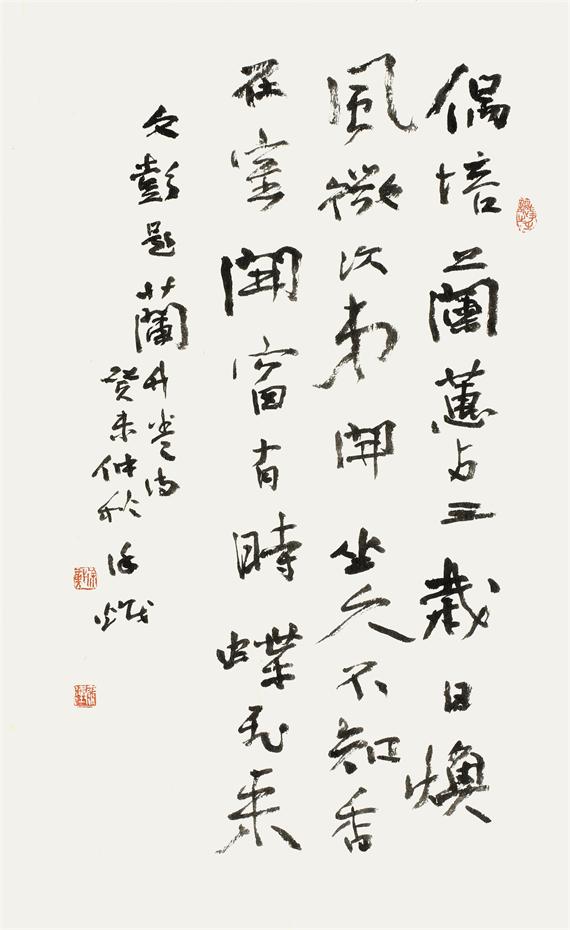 偶培蘭蕙三栽日煥
風微次弟開坐久不知香
在室開窗有時蝶飛来
文彭題蘭竹卷詩
癸未仲秋徐